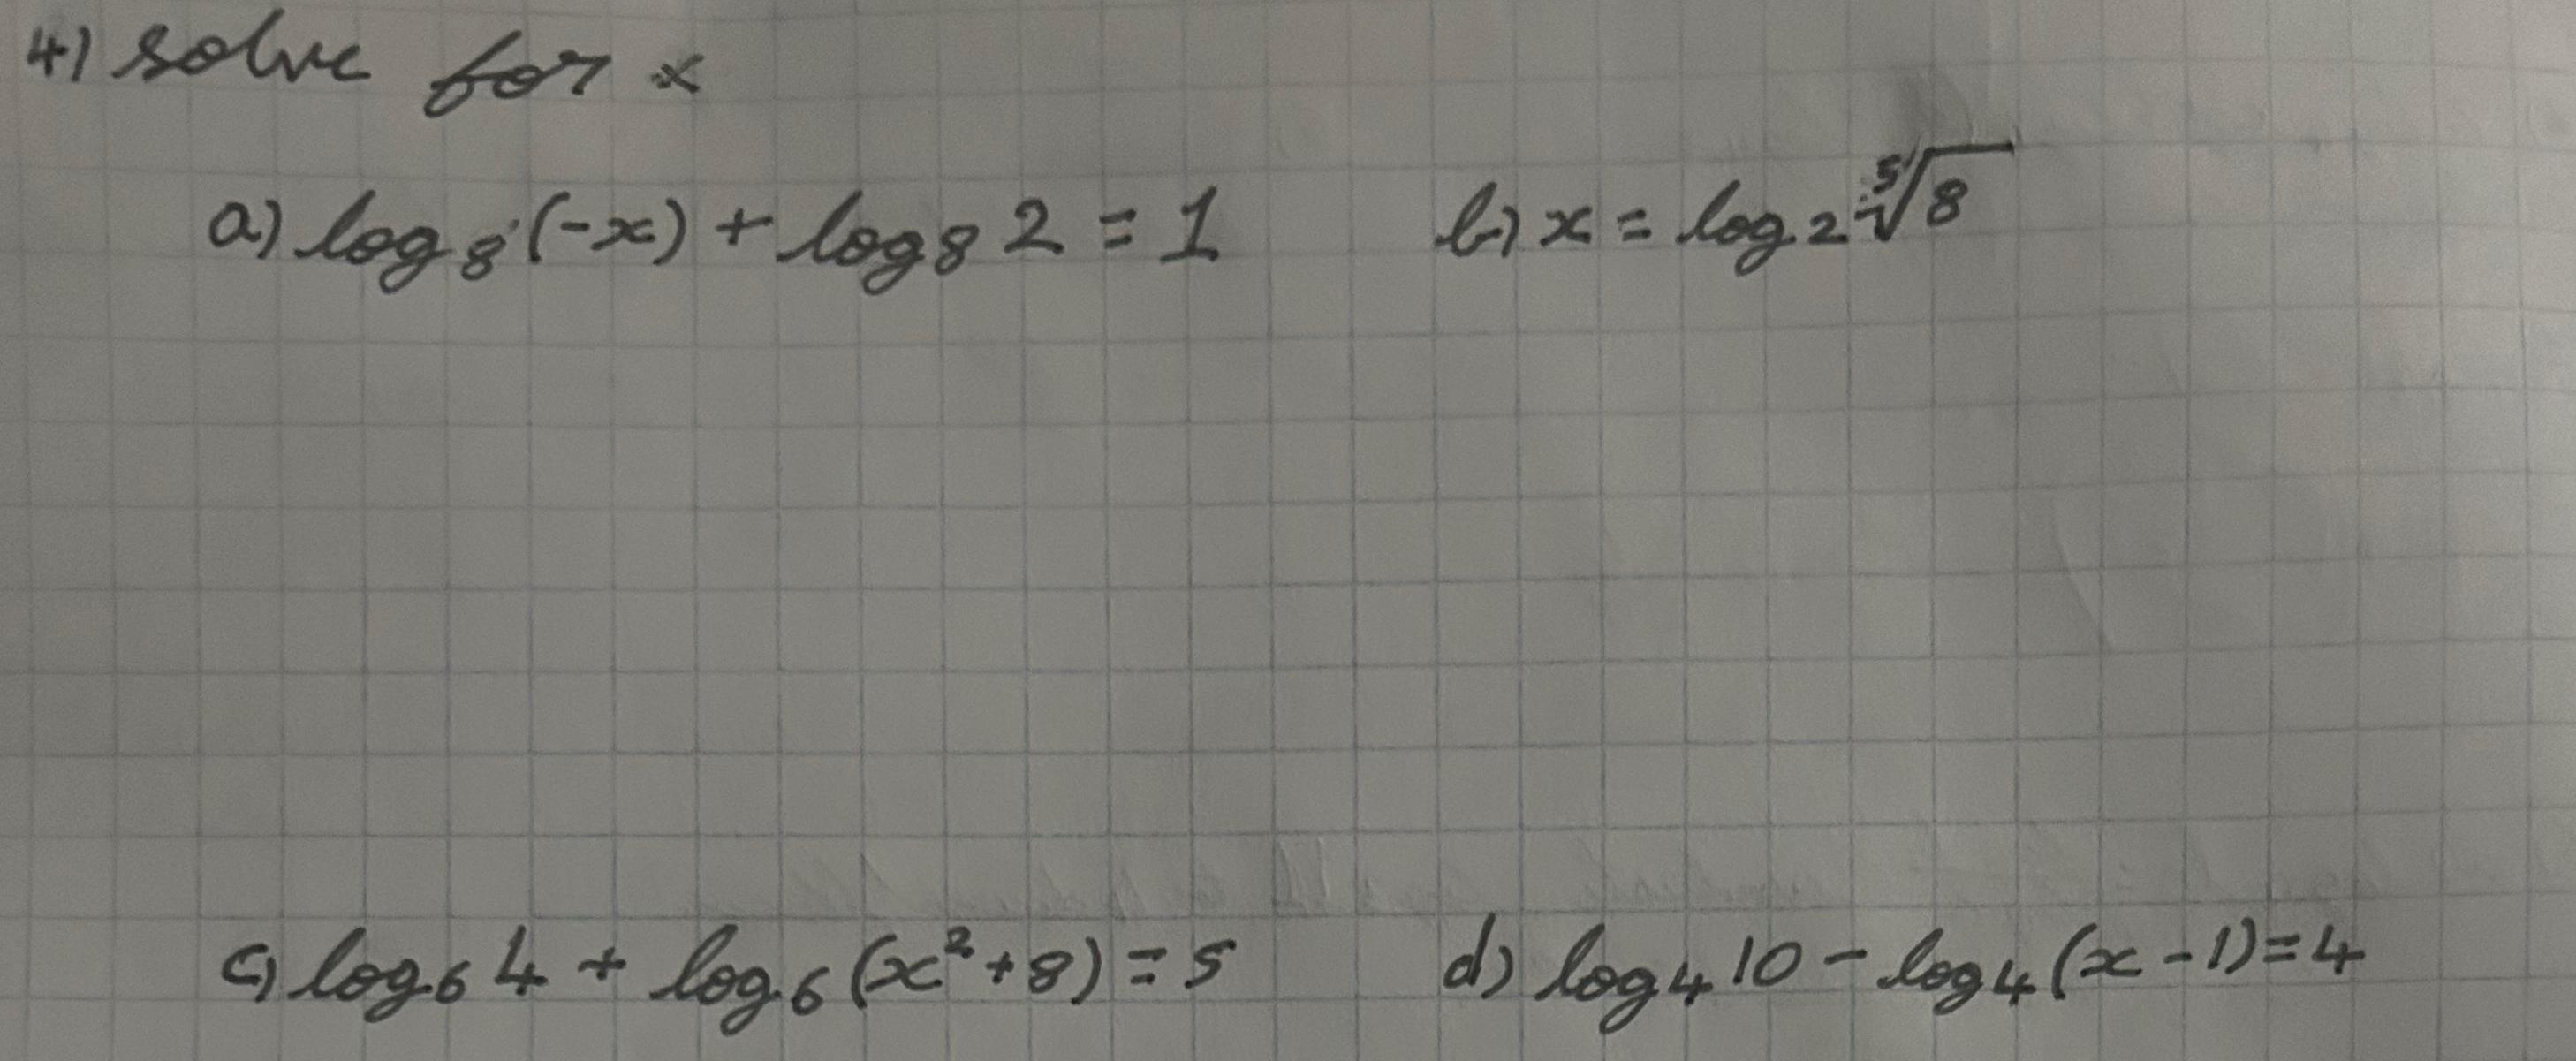 4) solve for x
a) log₈(-x) + log₈ 2 = 1
b) x = log₂ ⁵√8
c) log₆ 4 + log₆ (x² + 8) = 5
d) log₄ 10 - log₄ (x - 1) = 4